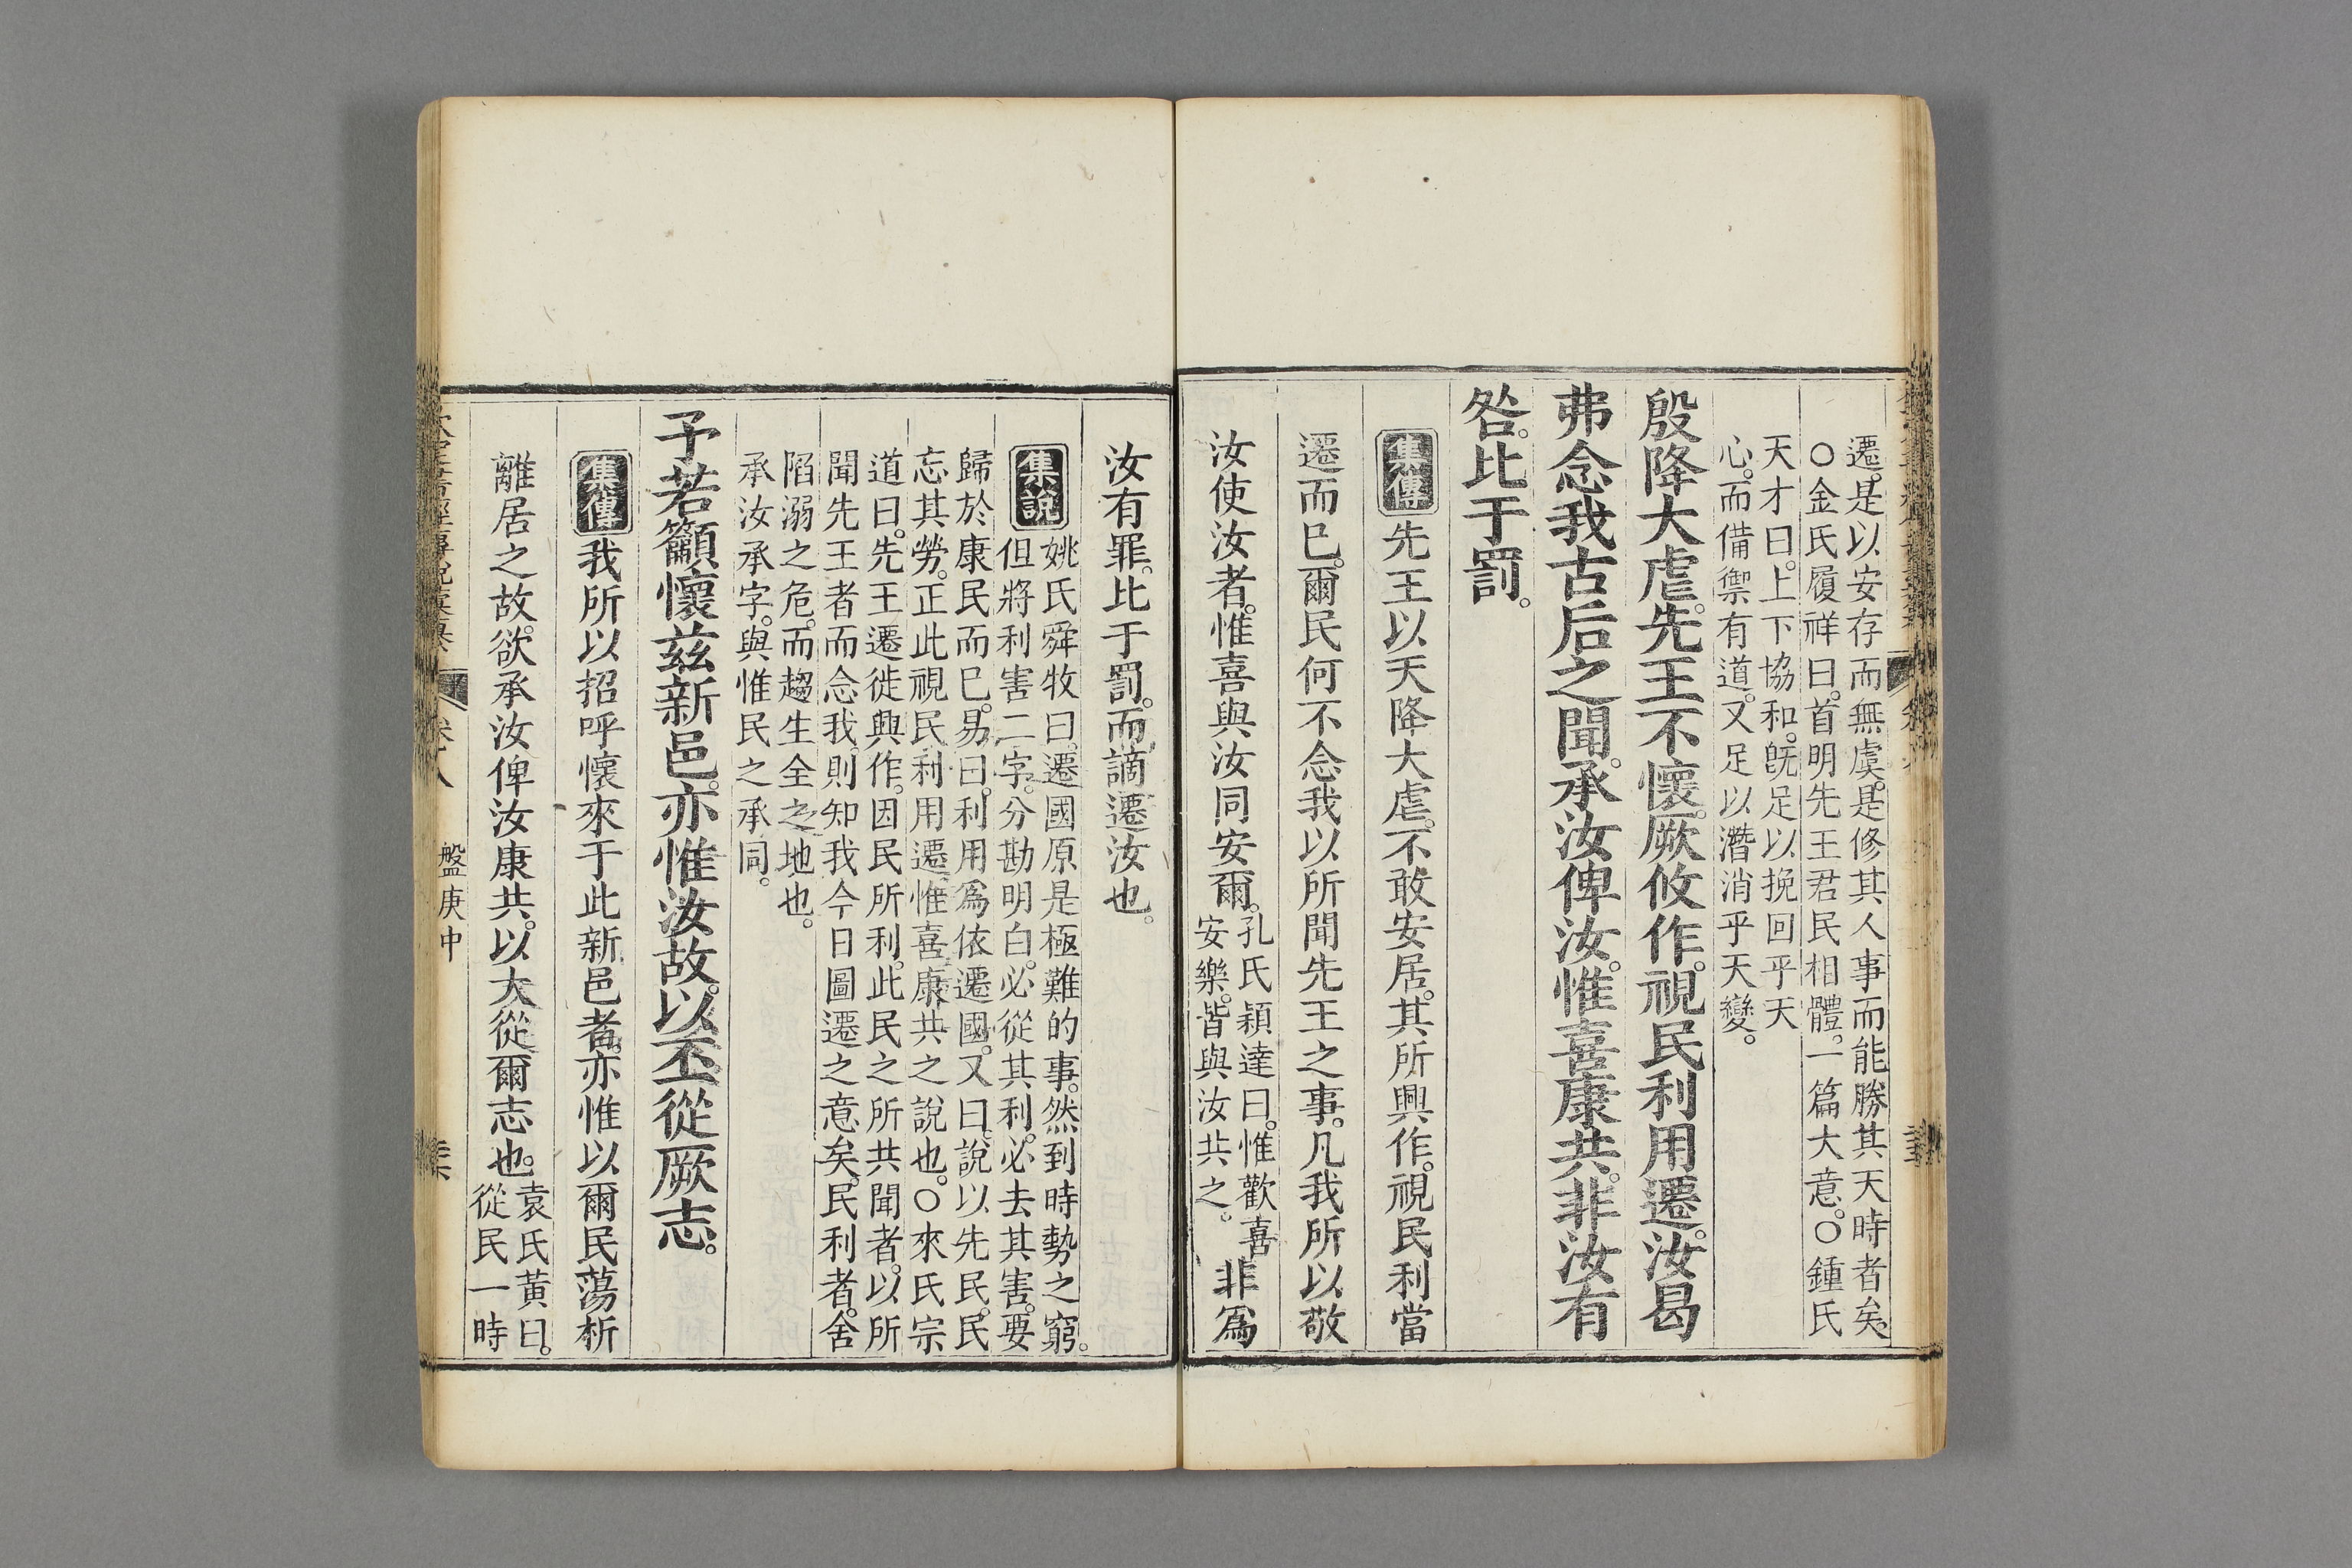 遷。是以安存而無虞。是修其人事而能勝其天時者矣。
○金氏履祥曰。首明先王君民相體。一篇大意。○鍾氏
天才曰。上下協和。旣足以挽回乎天
心。而備禦有道。又足以潛消乎天變。
殷降大虐。先王不懷。厥攸作。視民利用遷。汝曷
弗念我古后之聞。承汝俾汝。惟喜康共。非汝有
咎。比于罰。
集傳先王以天降大虐。不敢安居。其所興作。視民利當
遷而已。爾民何不念我以所聞先王之事。凡我所以敬
汝使汝者。惟喜與汝同安爾。
孔氏穎達曰。惟歡喜
安樂。皆與汝共之。
非爲
汝有罪。比于罰。而謫遷汝也。
集說
姚氏舜牧曰。遷國原是極難的事。然到時勢之窮。
但將利害二字。分勘明白。必從其利。必去其害。要
歸於康民而已。易曰。利用爲依遷國。又曰。說以先民。民
忘其勞。正此視民利用遷。惟喜康共之說也。○來氏宗
道曰。先王遷徙興作。因民所利。此民之所共聞者。以所
聞先王者而念我。則知我今日圖遷之意矣。民利者。舍
陷溺之危。而趨生全之地也。
承汝承字。與惟民之承同。
予若籲懷茲新邑。亦惟汝故。以丕從厥志。
集傳我所以招呼懷來于此新邑者。亦惟以爾民蕩析
離居之故。欲承汝俾汝康共。以大從爾志也。
袁氏黃曰。
從民一時
盤庚中